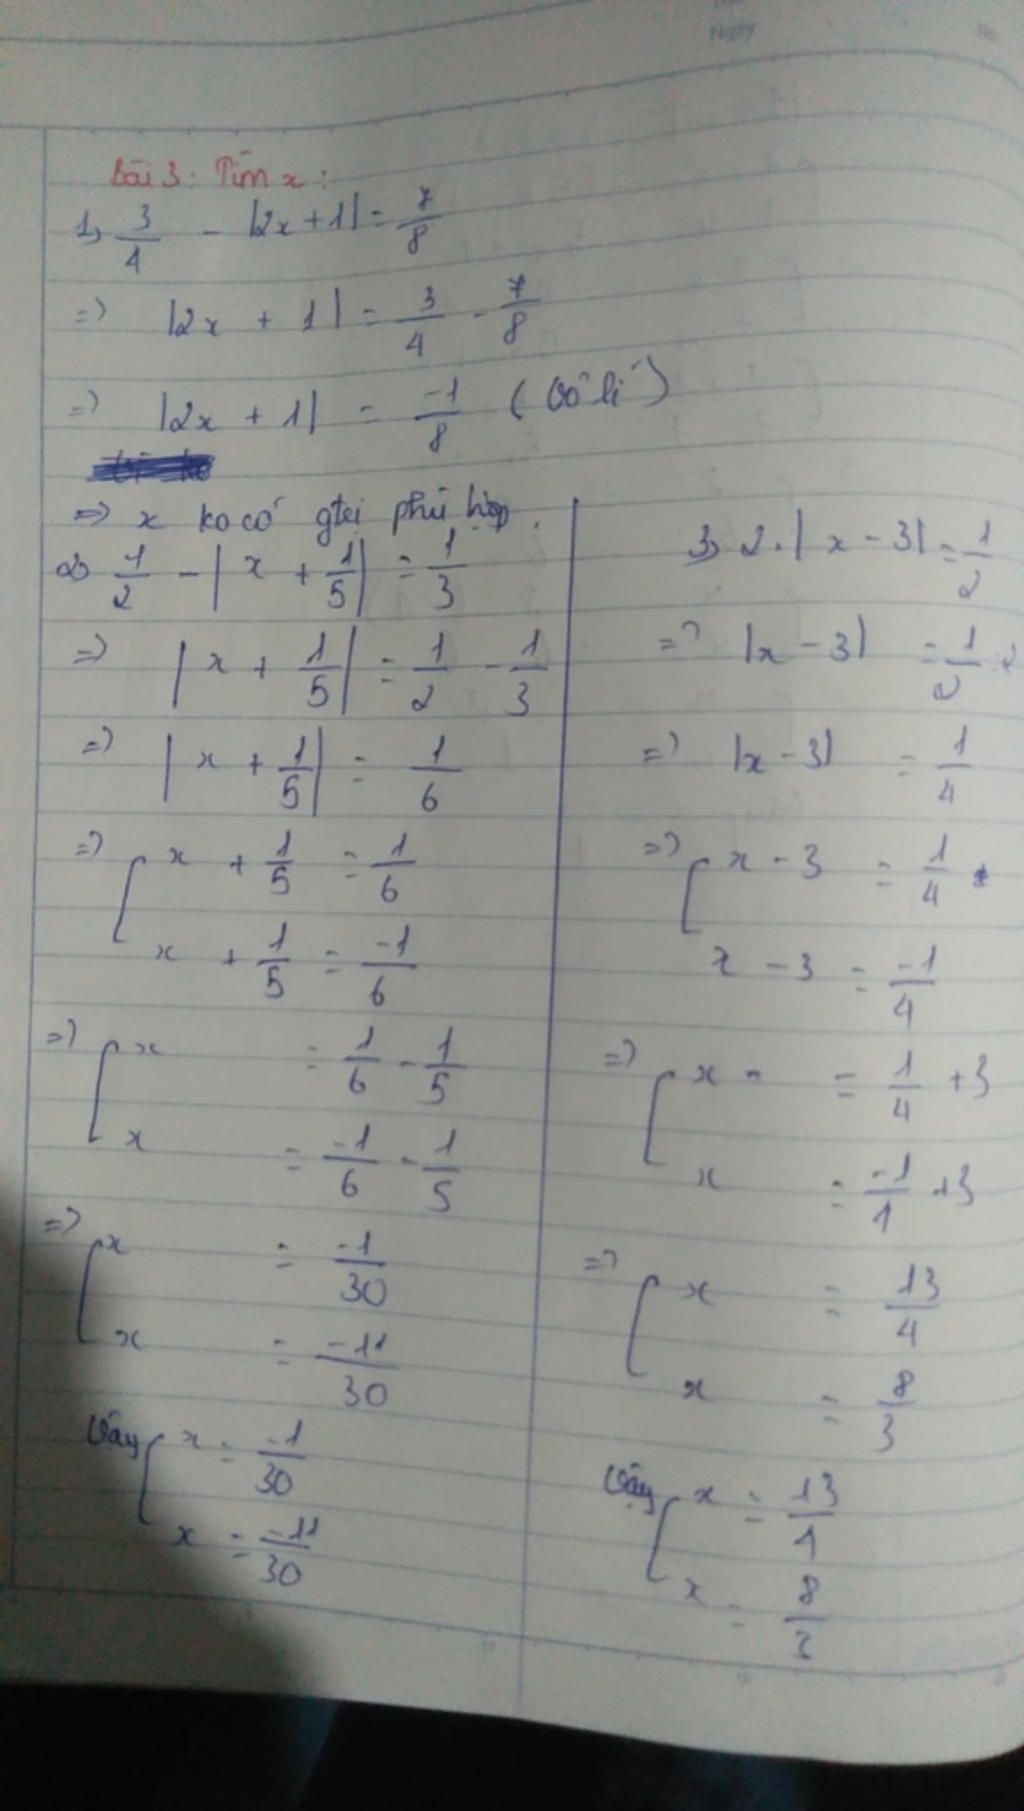 Ngày
No.
Bài 3: Tìm x:
1, 3/4 - |2x + 1| = 7/8
=> |2x + 1| = 3/4 - 7/8
=> |2x + 1| = -1/8 (Vô lí)
=> x ko có gtrị phù hợp.
2, 1/2 - |x + 1/5| = 1/3
=> |x + 1/5| = 1/2 - 1/3
=> |x + 1/5| = 1/6
=> [ x + 1/5 = 1/6
x + 1/5 = -1/6
=> [ x = 1/6 - 1/5
x = -1/6 - 1/5
=> [ x = -1/30
x = -11/30
Vậy [ x = -1/30
x = -11/30
3, 2.|x - 3| = 1/2
=> |x - 3| = 1/2 : 2
=> |x - 3| = 1/4
=> [ x - 3 = 1/4
x - 3 = -1/4
=> [ x = 1/4 + 3
x = -1/4 + 3
=> [ x = 13/4
x = 8/3
Vậy [ x = 13/4
x = 8/3